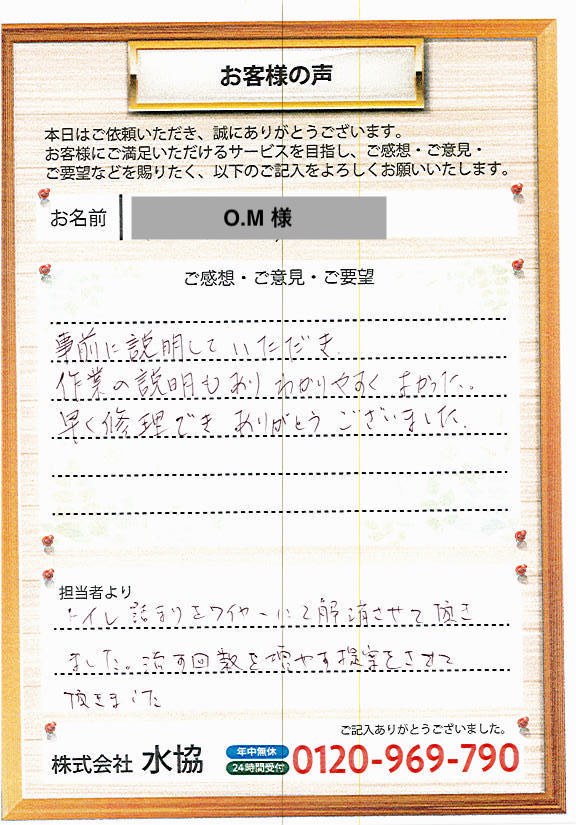 お客様の声
本日はご依頼いただき、誠にありがとうございます。
お客様にご満足いただけるサービスを目指し、ご感想・ご意見・
ご要望などを賜りたく、以下のご記入をよろしくお願いいたします。
お名前 O.M 様
ご感想・ご意見・ご要望
事前に説明していただき
作業の説明もありわかりやすく よかった。
早く修理でき ありがとう ございました。
担当者より
トイレ詰まりをワイヤーにて解消させて頂き
ました。流す回数を増やす提案をさせて
頂きました
ご記入ありがとうございました。
株式会社 水協 年中無休 24時間受付 0120-969-790